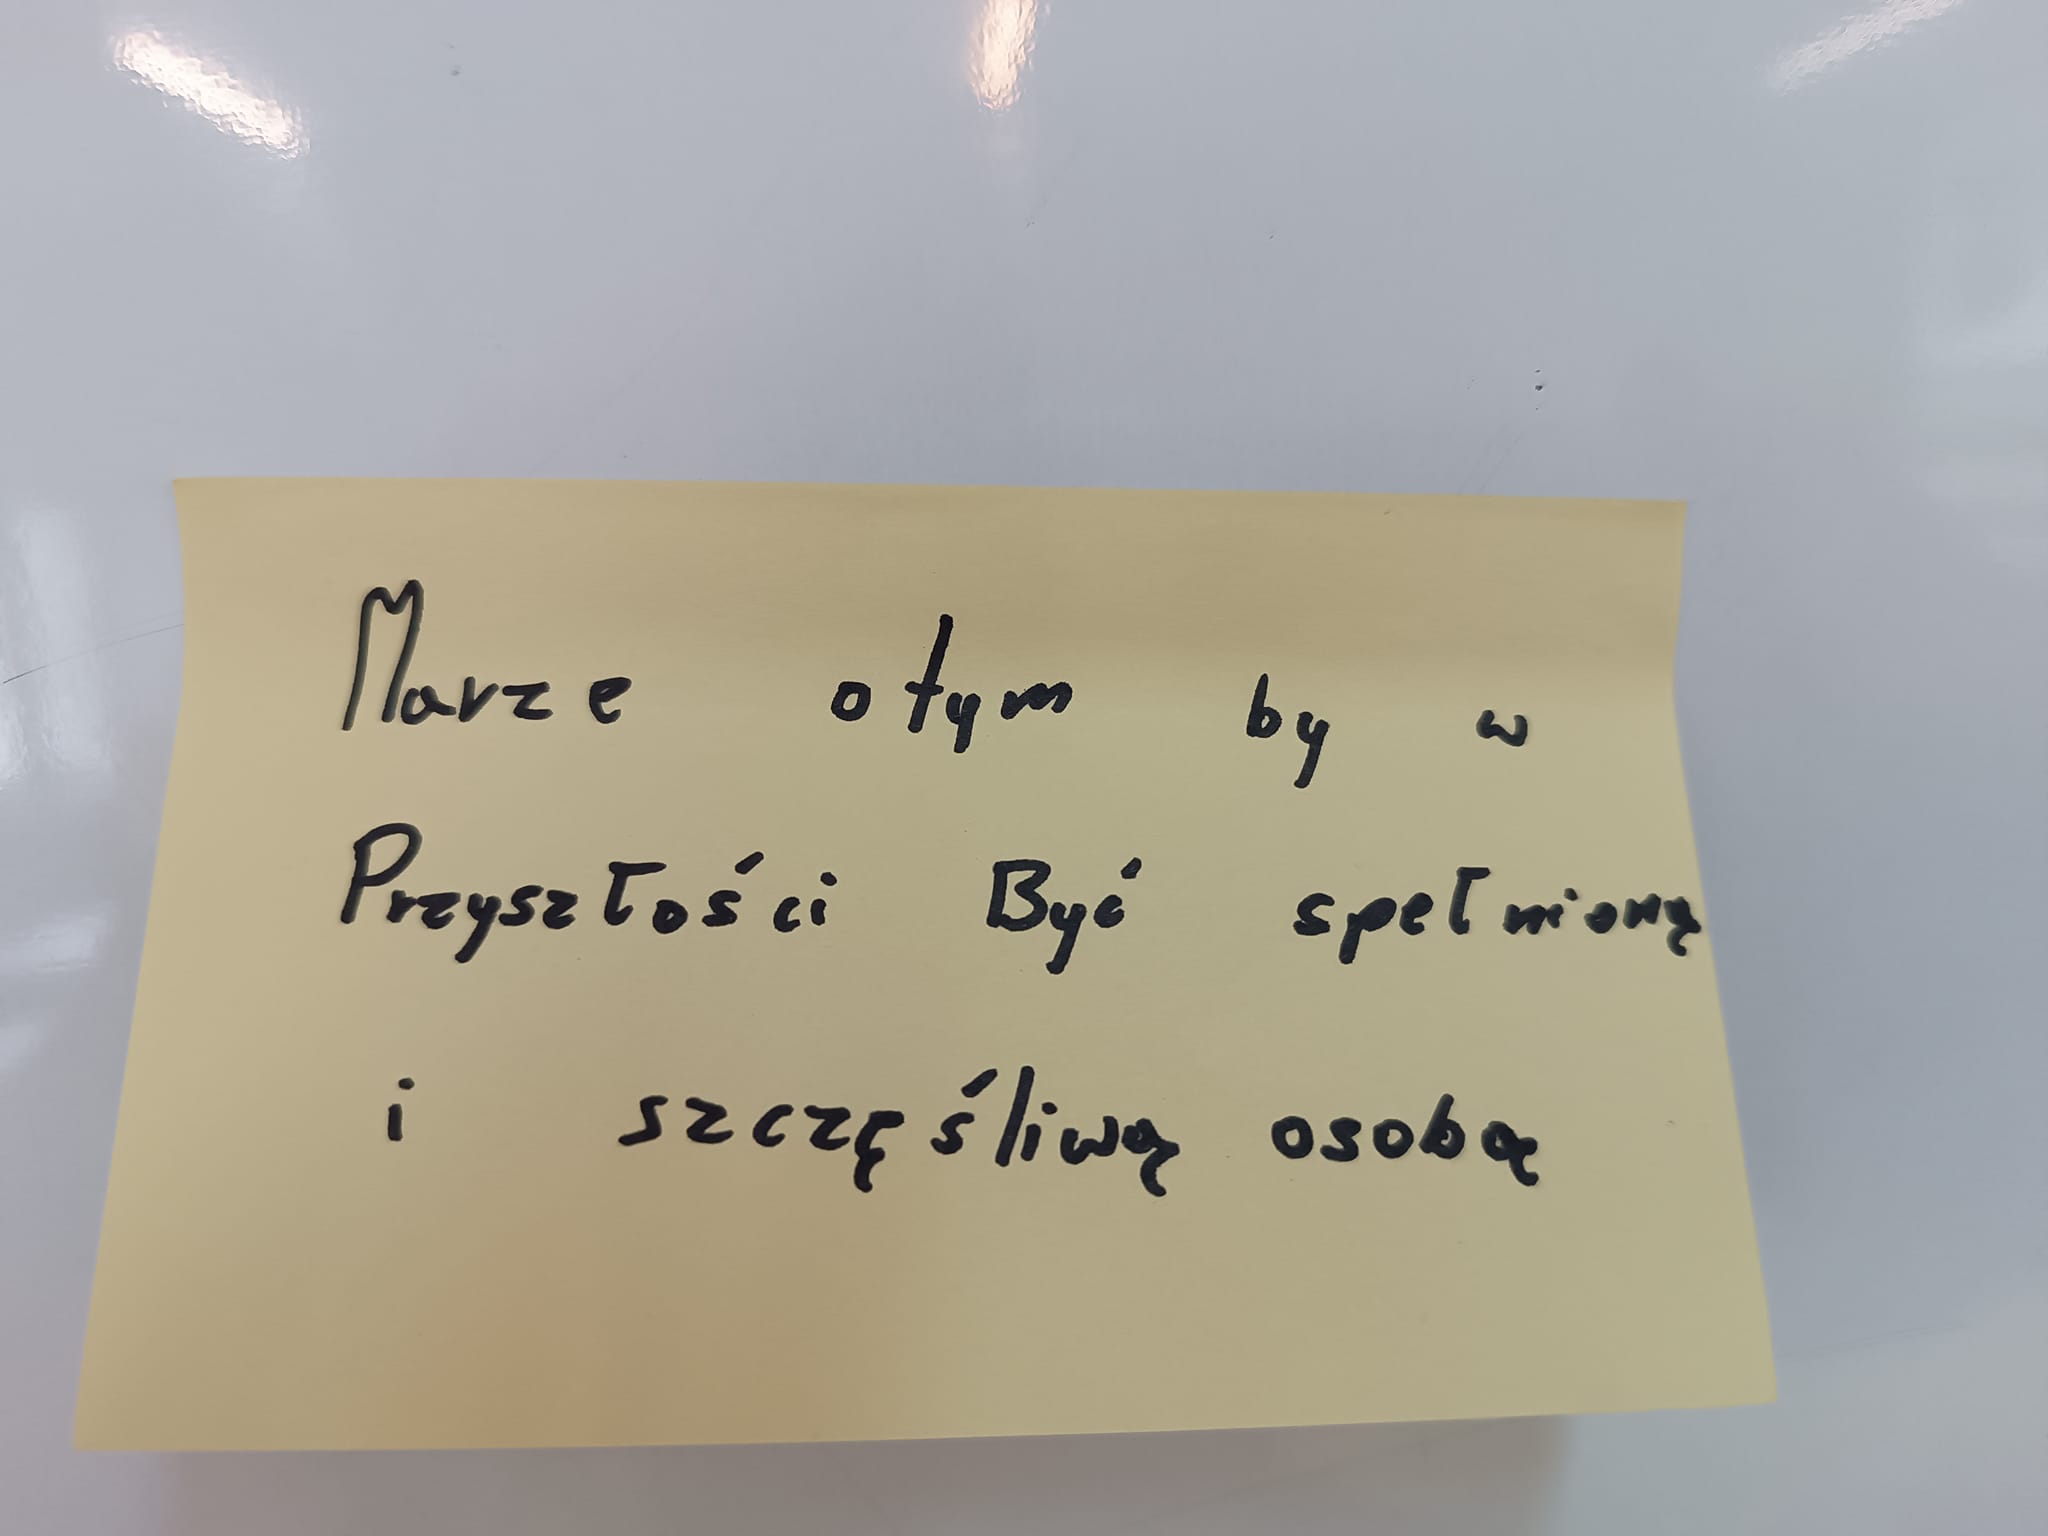 Marze o tym by w
Przyszłości Być spełnioną
i szczęśliwą osobą